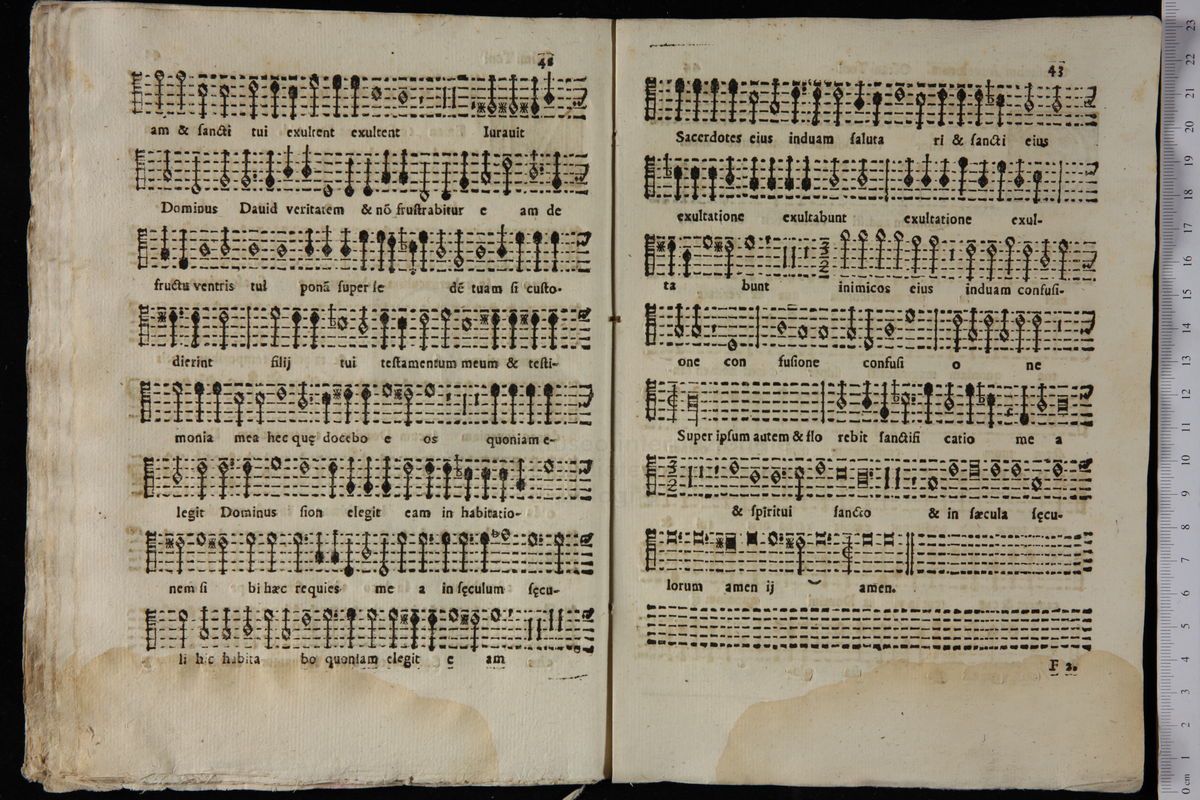 42
am & sancti tui exultent exultent Iurauit
Dominus Dauid veritatem & nō frustrabitur e am de
fructu ventris tui ponā super se dē tuam si custo-
dierint filij tui testamentum meum & testi-
monia mea hec quę docebo e os quoniam e-
legit Dominus sion elegit eam in habitatio-
nem si bi hæc requies me a in sęculum sęcu-
li hic habita bo quoniam elegit e am
43
Sacerdotes eius induam saluta ri & sancti eius
exultatione exultabunt exultatione exul-
ta bunt inimicos eius induam confusi-
one con fusione confusi o ne
Super ipsum autem & flo rebit sanctifi catio me a
& spiritui sancto & in sæcula sęcu-
lorum amen ij amen.
F 2.
23
22
21
20
19
18
17
16
15
14
13
12
11
10
9
8
7
6
5
4
3
2
1
0 cm